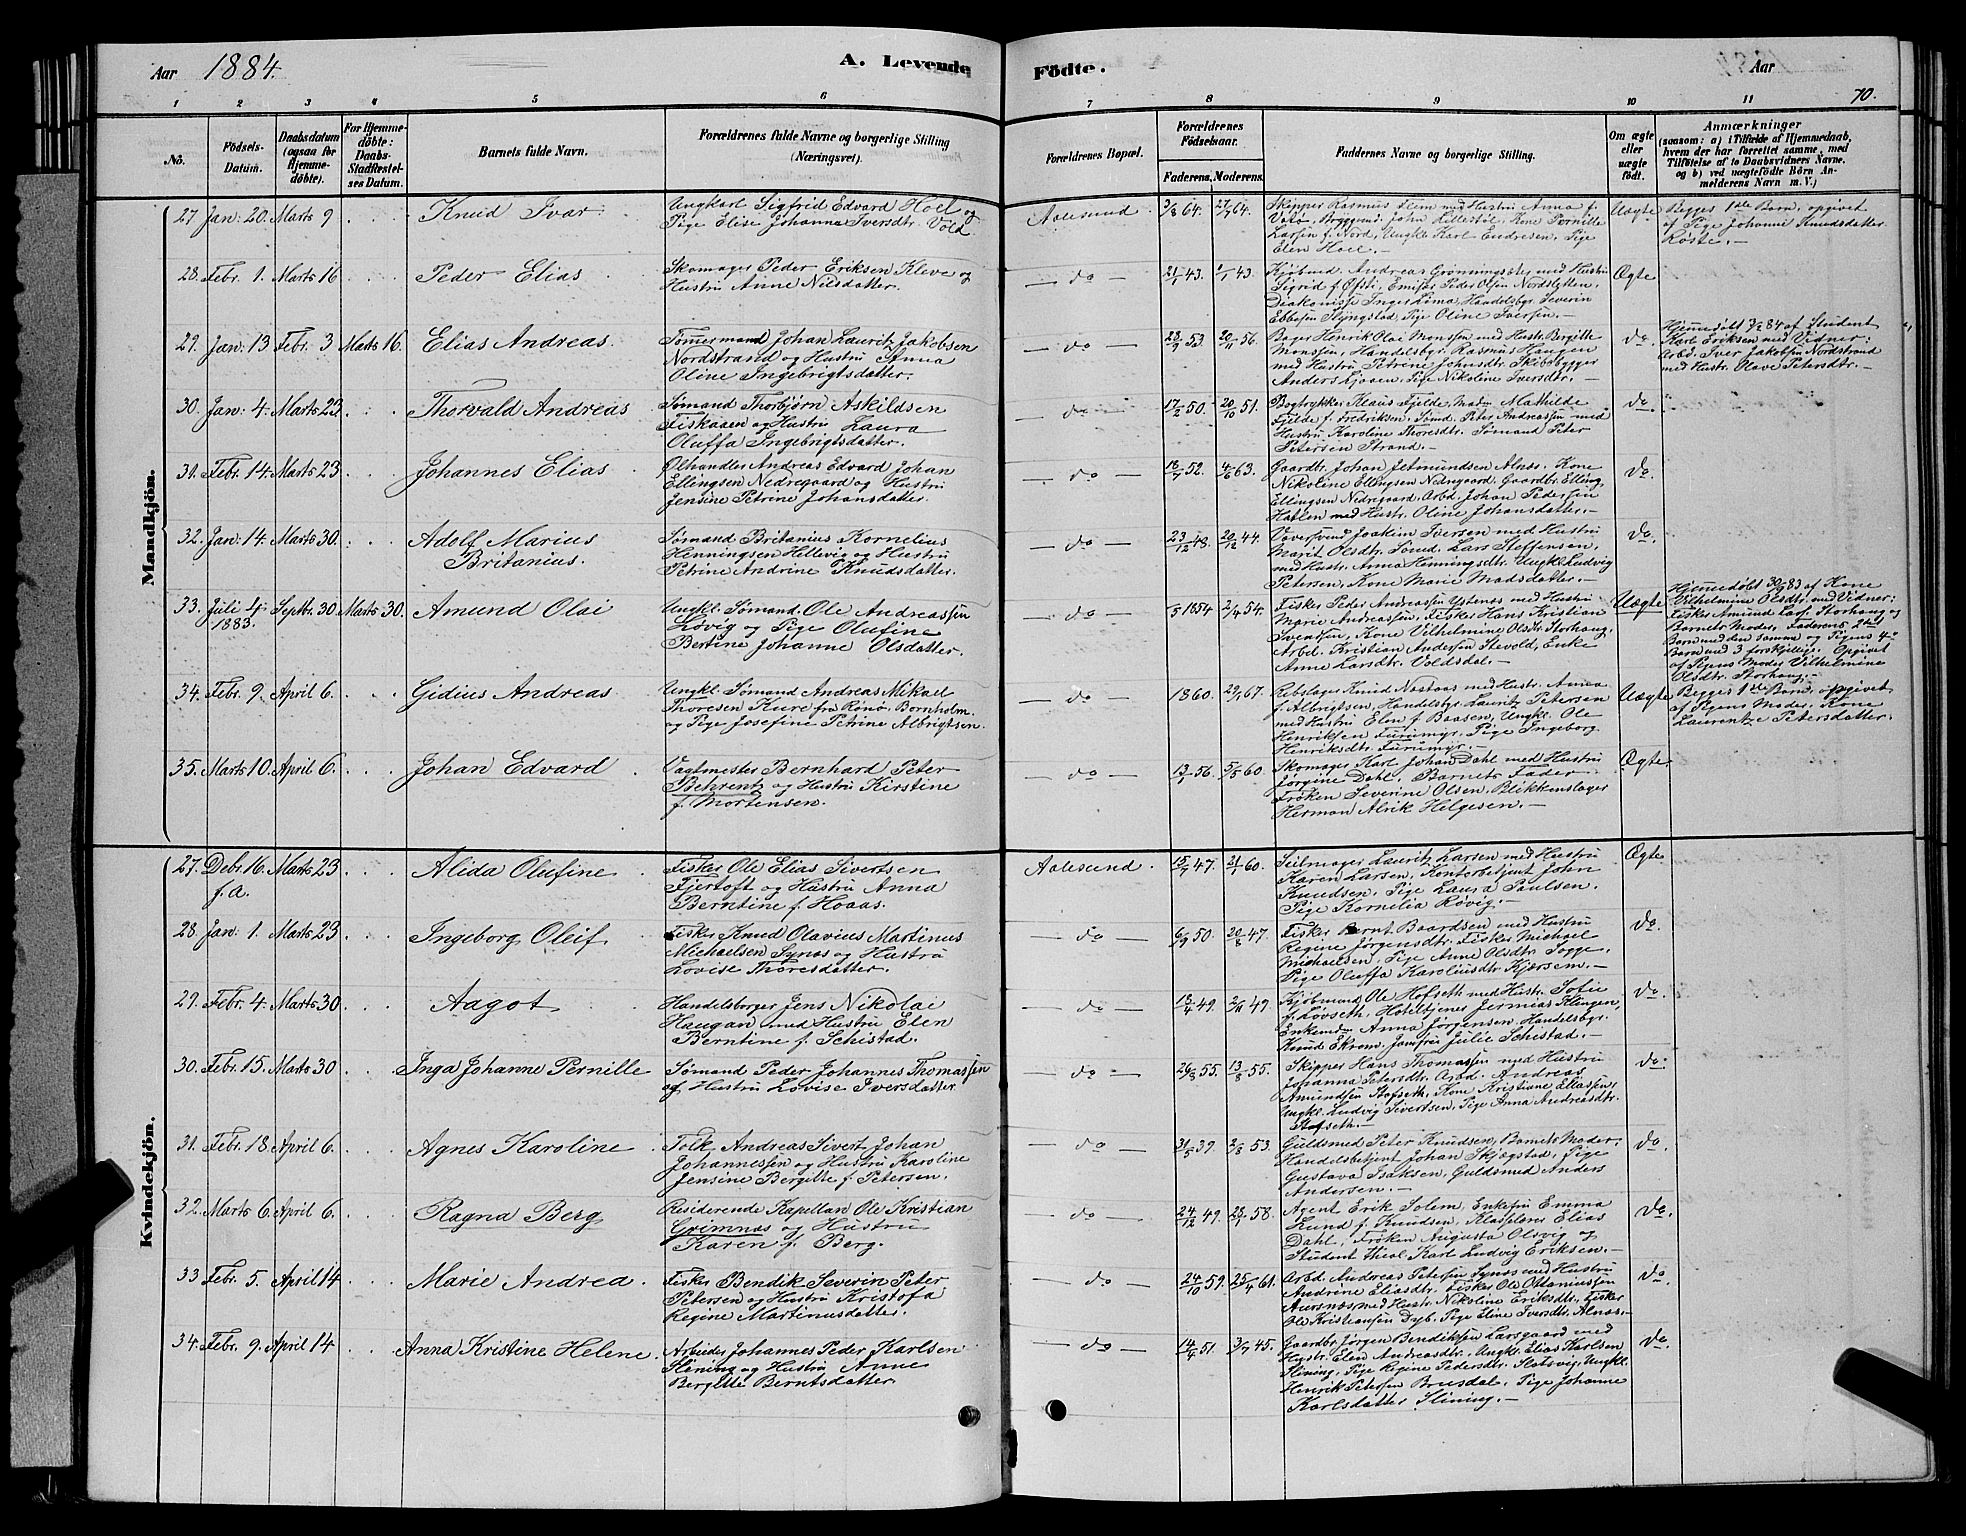 Aar 1884. A. Levende Fødte. Aar
70.
1 2 3 4 5 6 7 8 9 10 11
No.
Fødsels-Datum.
Daabsdatum (ogsaa for Hjemme-døbte).
For Hjemme-døbte: Daabs-Stadfæstel-ses Datum.
Barnets fulde Navn.
Forældrenes fulde Navne og borgerlige Stilling (Næringsvei).
Forældrenes Bopæl.
Forældrenes Fødselsaar.
Faderens. Moderens.
Faddernes Navne og borgerlige Stilling.
Om ægte eller uægte født.
Anmærkninger
(saasom: a) i Tilfælde af Hjemmedaab,
hvem der har forrettet samme, med
Tilføielse af to Daabsvidners Navne,
og b) ved uægtefødte Børn An-
melderens Navn m. V.)
Mandkjøn.
27. Jan: 20. Marts 9 Knud Ivar
Ungkarl Sigfrid Edvard Hoel og
Pige Elise Johanne Iversdtr. Vold
Aalesund. 3/8 64. 27/7 64.
Skipper Rasmus Heim med Hustru Anna f.
Larsen f. Nord, Ungkl. Karl Endresen, Pige
Elen Hoel.
Uægte
Begges 1ste Barn, opgivet
af Pige Johanne Knudsdatter
Røste.
28. Febr. 1. Marts 16 Peder Elias
Skomager Peder Eriksen Kleve og
Hustru Anne Nilsdatter.
do 21/1 43. 2/1 43.
Kjøbmd. Andreas Grønningsæter med Hustru
Sigrid f. Øfsti, Emisær Peder Olsen Nordsletten,
Diakonisse Inger Lima, Handelsbgr. Severin
Ebbesen Slyngstad, Pige Oline Iversen.
Ægte
29. Jan: 13 Febr. 3 Marts 16. Elias Andreas
Tømmermand Johan Lauritz Jakobsen
Nordstrand og Hustru Anna
Oline Ingebrigtsdatter.
do 23/9 53 20/11 56.
Bager Henrik Olai Monssen med Hustr. Bergitte
Monssen, Handelsbgr. Rasmus Haugen
med Hustru Petrine Johnsdtr. Skibsbygger
Anders Gjøen, Pige Nikoline Iversdtr.
do.
Hjemmedøbt 3/2 84 af Student
Karl Eriksen med Vidner:
Arbd. Iver Jakobsen Nordstrand
med Hustr. Olave Petersdtr.
30. Jan: 4. Marts 23. Thorvald Andreas
Sømand Thorbjørn Askildsen
Fiskaaen og Hustru Laura
Oluffa Ingebrigtsdatter.
do 17/2 50. 20/10 51.
Bogtrykker Klaus Fjelde, Madm Mathilde
Fjelde f. Fredriksen, Sømd. Peter Andreassen med
Hustru Karoline Thoresdtr. Sømand Peter
Petersen Strand.
do
31. Febr. 14. Marts 23. Johannes Elias
Ølhandler Andreas Edvard Johan
Ellingsen Nedregaard og Hustru
Jensine Petrine Johansdatter.
do 16/7 52. 4/6 63.
Gaardbr. Johan Jetmundsen Alnæs, Kone
Nikoline Ellingsen Nedregaard, Gaardbr. Elling
Ellingsen Nedregaard, Arbd. Johan Pedersen
Hatlen med Hustr. Oline Johansdatter.
do.
32. Jan: 14. Marts 30. Adolf Marius
Britanius.
Sømand Britanius Kornelius
Henningsen Hellevig og Hustru
Petrine Andrine Knudsdatter.
do 23/12 43. 20/12 44.
Joakim Iversen med Hustru
Marit Olsdtr. Sømd. Lars Steffensen,
med Hustr. Anna Henningsdtr. Ungkl. Ludvig
Petersen, Kone Marie Madsdatter.
do.
33. Juli 4. Septbr. 30. Marts 30. Amund Olai
1883.
Ungkl. Sømand Ole Andreassen
Løvig og Pige Olufine
Bertine Johanne Olsdatter.
do 1854 2/4 54.
Fisker Peder Andreassen Ystenæs med Hustru
Marie Andreassen, Fisker Hans Kristian
Svendsen, Kone Vilhelmine Olsdtr. Storhaug,
Arbd. Kristian Andersen Stevold, Enke
Anne Larsdtr. Voldsdal.
Uægte
Hjemmedøbt 30/9 83 af Kone
Vilhelmine Olsdtr. med Vidner:
Fisker Amund Lars. Storhaug og
Barnets Moder, Faderens 2det
Barn med den samme og Pigens 4de
Barn med 3 forskjellige. Opgivet
af Pigens Moder Vilhelmine
Olsdtr. Storhaug.
34. Febr. 9. April 6. Gidius Andreas
Ungkl. Sømand Andreas Mikael
Thoresen Kure fra Rønø Bornholm.
og Pige Josefine Petrine Albrigtsen.
do 1860. 29/1 67.
Rebslager Knud Nastaas med Hustr. Anna
f. Albrigtsen, Handelsbgr. Lauritz Petersen
med Hustru Elen f. Baasen, Ungkl. Ole
Henriksen Furumyr, Pige Ingeborg
Henriksdtr. Furumyr.
Uægte
Begges 1ste Barn, opgivet
af Pigens Moder, Kone
Laurentze Petersdatter.
35. Marts 10. April 6. Johan Edvard
Vagtmester Bernhard Peter
Behrentz og Hustru Kirstine
f. Mortensen.
do 13/1 56. 5/5 60.
Skomager Karl Johan Dahl med Hustru
Jørgine Dahl, Barnets Fader
Frøken Severine Olsen, Blikkenslager
Herman Alrik Helgesen.
Ægte.
Kvindekjøn.
27. Debr. 16. Marts 23 Alida Olufine
f. a.
Fisker Ole Elias Sivertsen
Fjertoft og Hustru Anna
Berntine f. Hoaas.
Aalesund. 15/7 47. 21/1 60.
Seilmager Lauritz Larsen med Hustru
Karen Larsen, Kontorbetjent John
Knudsen, Pige Laura Paulsen,
Pige Kornelia Røvig.
Ægte
28. Jan: 1. Marts 23 Ingeborg Oleif
Fisker Knud Olavius Martinus
Michaelsen Synæs og Hustru
Lovise Thoresdatter.
do 6/9 50. 20/8 47.
Fisker Bernt Baardsen med Hustru
Regine Jørgensdtr. Fisker Michael
Michaelsen, Pige Anne Olsdtr. Sogge,
Pige Oluffa Karoliusdtr. Kjærsem.
do.
29. Febr. 4. Marts 30 Aagot
Handelsborger Jens Nikolai
Haugan med Hustru Elen
Berntine f. Schistad.
do 13/4 49. 2/11 49.
Kjøbmand Ole Hofseth med Hustr. Sofie
f. Løvseth, Hotelbjener Jermias Klingen,
Enkemdm. Anna Jørgensen, Handelsbgr.
Knud Ekrom, Jomfru Julie Schistad.
do.
30. Febr. 15. Marts 30 Inga Johanne Pernille
Sømand Peder Johannes Thomassen
og Hustru Lovise Iversdatter.
do 26/8 55. 13/8 55.
Skipper Hans Thomassen med Hustru
Johanna Petersdtr. Arbd. Andreas
Amundsen Stofseth, Kone Kristiane Eliassen,
Ungkl. Ludvig Sivertsen, Pige Anna Andreasdtr.
Stofseth.
do
31. Febr. 18. April 6. Agnes Karoline
Tolk Andreas Sivert Johan
Johannessen og Hustru Karoline
Jensine Bergitte f. Petersen.
do 31/5 39. 2/8 53.
Guldsmed Peter Knudsen, Barnets Moder,
Handelsbetjent Johan Skjægstad, Pige
Gustava Isaksen, Guldsmed Anders
Andersen.
do.
32. Marts 6. April 6. Ragna Berg
Residerende Kapellan Ole Kristian
Grimnæs og Hustru
Karen f. Berg.
do 24/12 49. 28/1 58.
Agent Erik Solem, Enkefru Emma
Lund f. Knudsen, Klasflærer Elias
Dahl, Frøken Augusta Olsvig og
Student theol. Karl Ludvig Eriksen.
do.
33 Febr. 5. April 14 Marie Andrea
Fisker Bendik Severin Peter
Petersen og Hustru Kristofa
Regine Martinusdatter.
do 24/10 59. 25/4 61.
Arbd. Andreas Petersen Synæs med Hustru
Andrine Eliasdtr. Fisker Ole Ottaniussen
Aursnæs, med Hustr. Nikoline Eriksdtr. Fisker
Ole Kristiansen Dyb, Pige Eline Iversdtr. Alnæs.
do.
34. Febr. 9. April 14 Anna Kristine Helene.
Arbeider Johannes Peder Karlsen
Slining og Hustru Anne
Bergitte Berntsdatter.
do 14/4 51. 3/7 45.
Gaardbr. Jørgen Bendiksen Larsgaard med
Hustr. Elen Andreasdtr. Ungkl. Elias Karlsen
Slining, Pige Regine Pedersdtr. Slotsvig, Ungkl.
Henrik Petersen Brusdal, Pige Johanne
Karlsdatter Slining.
do.